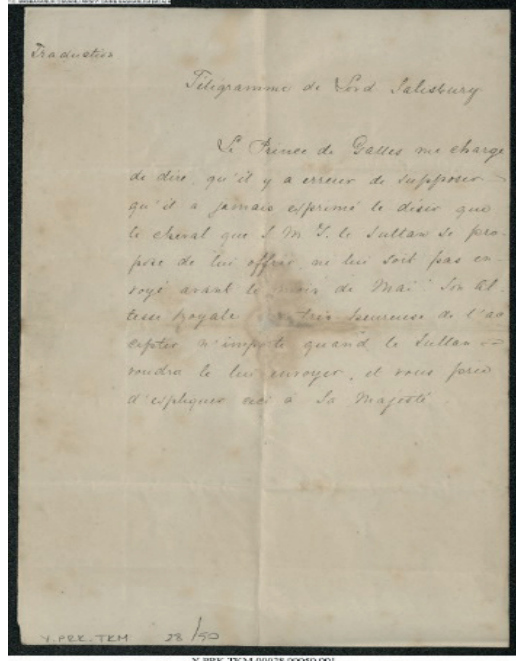 Traduction
Télégramme de Lord Salisbury
Le Prince de Galles me charge
de dire, qu'il y a erreur de supposer
qu'il a jamais exprimé le désir que
le cheval que S. M. I. le Sultan se pro-
pose de lui offrir ne lui soit pas en-
voyé avant le mois de Mai. Son Al-
tesse Royale très heureuse de l'ac
cepter n'importe quand le Sultan
voudra le lui envoyer, et vous prie
d'expliquer ceci à Sa Majesté.
Y.PRK.TKM 28/50
Y.PRK.TKM.00028.00050.001